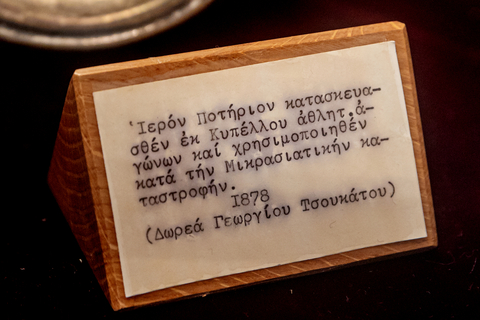 Ἱερόν Ποτήριον κατασκευα-
σθέν ἐκ Κυπέλλου ἀθλητ.ἀ-
γώνων καί χρησιμοποιηθέν
κατά τήν Μικρασιατικήν κα-
ταστροφήν.
1878
(Δωρεά Γεωργίου Τσουκάτου)